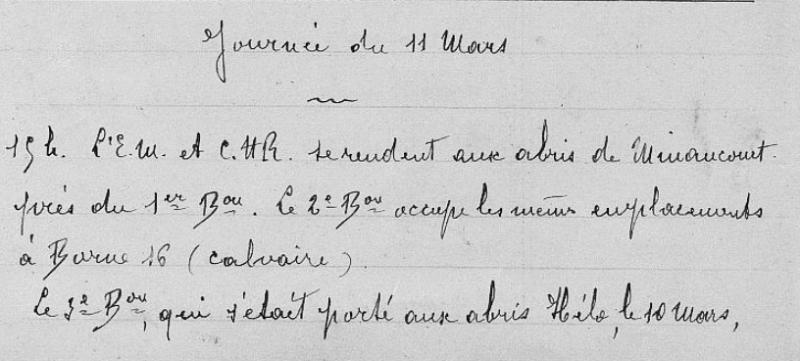 Journée du 11 Mars
15 h. L'E.M. et C.H.R. se rendent aux abris de Minaucourt.
près du 1er Bon. Le 2e Bon occupe les mêmes emplacements
à Borne 16 (calvaire).
Le 3e Bon, qui s'était porté aux abris Hélo, le 10 Mars,